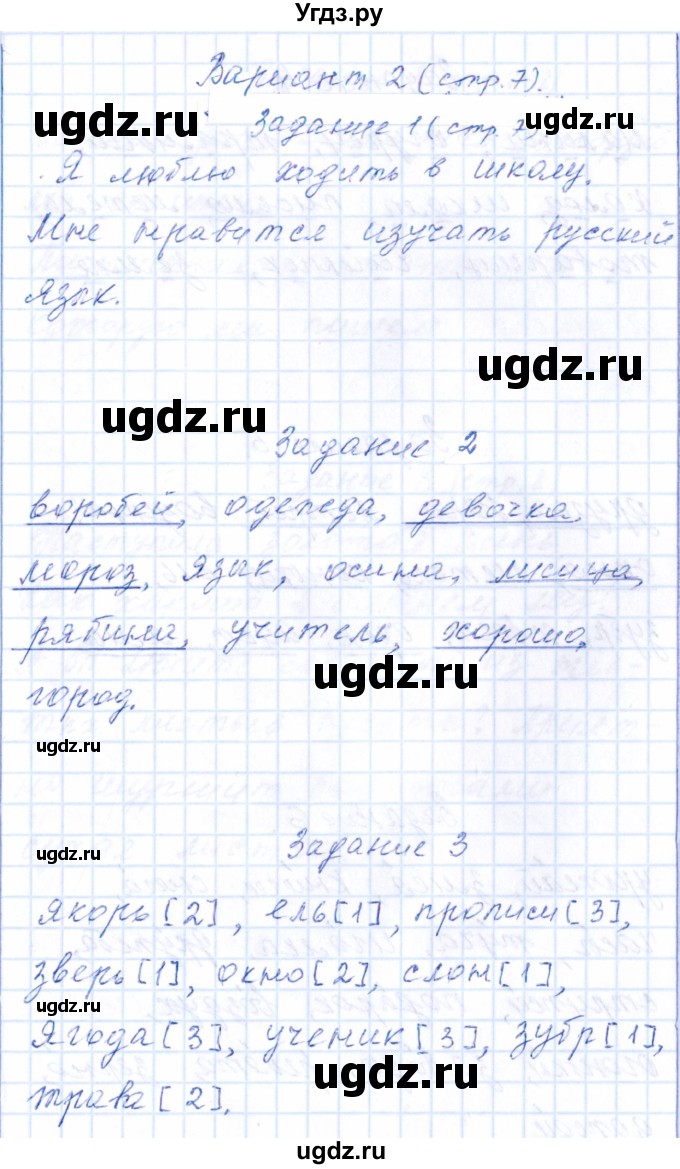 Угдз.ру
Вариант 2 (стр. 7).
ugdz.ru ugdz.ru
Задание 1 (стр. 7)
Я люблю ходить в школу.
Мне нравится изучать русский
язык.
ugdz.ru
ugdz.ru
Задание 2
воробей, одежда, девочка,
мороз, язык, осина, лисица,
рябина, учитель, хорошо,
ugdz.ru
город.
ugdz.ru
Задание 3
ugdz.ru
якорь [2], ель [1], прописи [3],
зверь [1], окно [2], слон [1],
ugdz.ru
ягода [3], ученик [3], зубр [1],
ugdz.ru
трава [2].
ugdz.ru